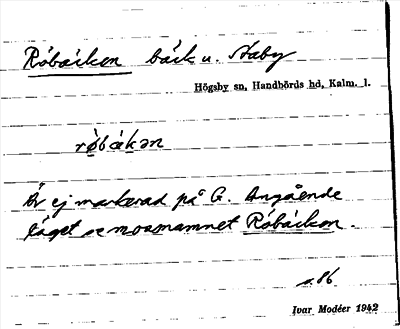 Röbäcken bäck u. Staby
Högsby sn, Handbörds hd, Kalm. l.
röbäkən
Är ej markerad på G. Angående
läget se mosnamnet Röbäcken.
s. 86
Ivar Modéer 1942